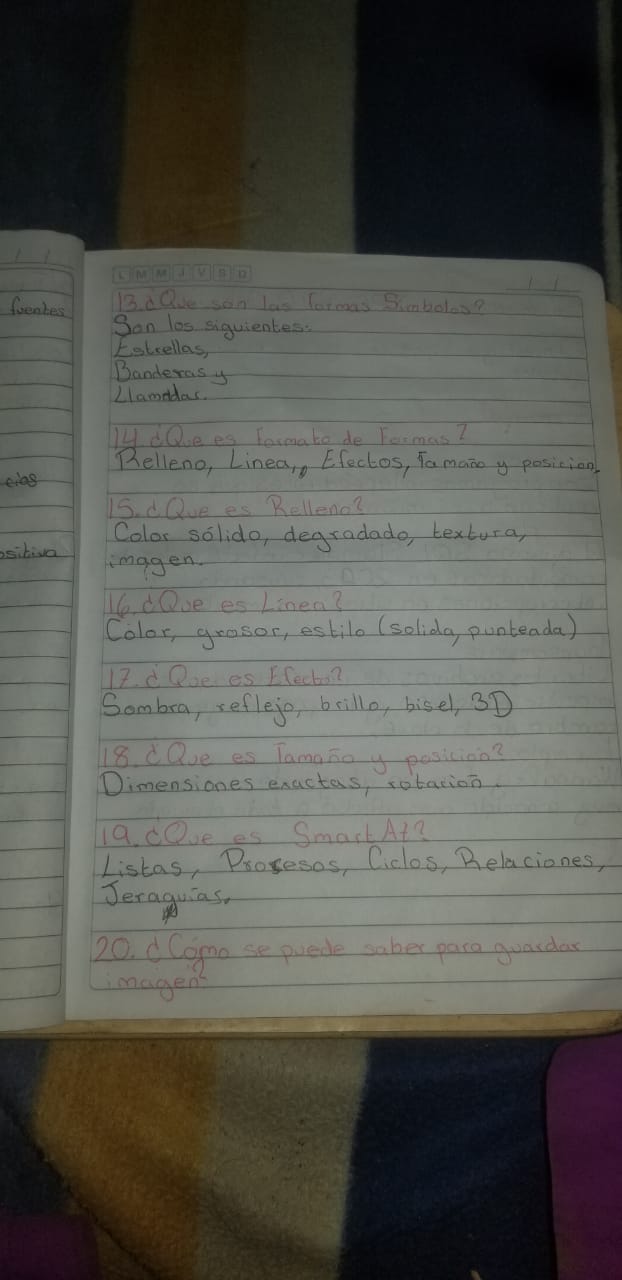 fuentes
cias
ositiva
L M M J V S D
13.¿Que son las formas Simbolos?
Son los siguientes:
Estrellas,
Banderas y
Llamadas.
14.¿Que es Formato de Formas?
Relleno, Linea,, Efectos, Tamaño y posicion.
15.¿Que es Relleno?
Color sólido, degradado, textura,
imagen.
16.¿Que es Linea?
Color, grosor, estilo (solida, punteada)
17.¿Que es Efecto?
Sombra, reflejo, brillo, bisel, 3D
18.¿Que es Tamaño y posicion?
Dimensiones exactas, rotacion.
19.¿Que es SmartAt?
Listas, Procesos, Ciclos, Relaciones,
Jeraquias.
20.¿Cómo se puede saber para guardar
imagen?